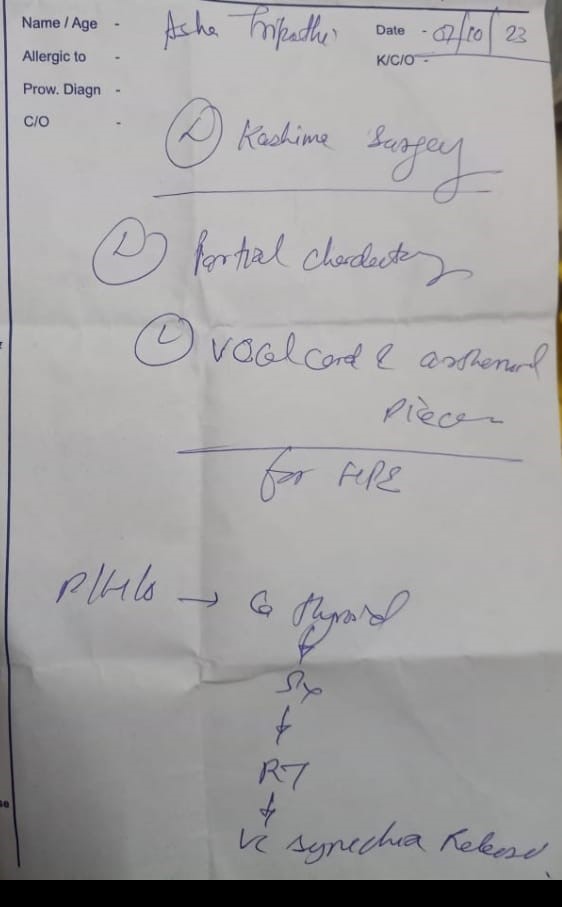 Name / Age - Asha Tripathi
Date - 07/10/23
Allergic to -
K/C/O -
Prow. Diagn -
C/O -
(L) Kashima Surgey
(L) Partial chordectomy
(L) vocal cord & arytenoid
Piece
for HPE
P/H/O → Ca thyroid
↓
Sx
↓
RT
↓
VC synechia Release